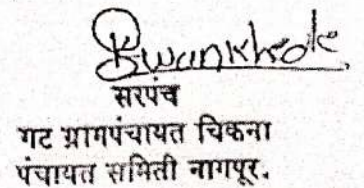 Bwankhede
सरपंच
गट ग्रामपंचायत चिकना
पंचायत समिती नागपूर.